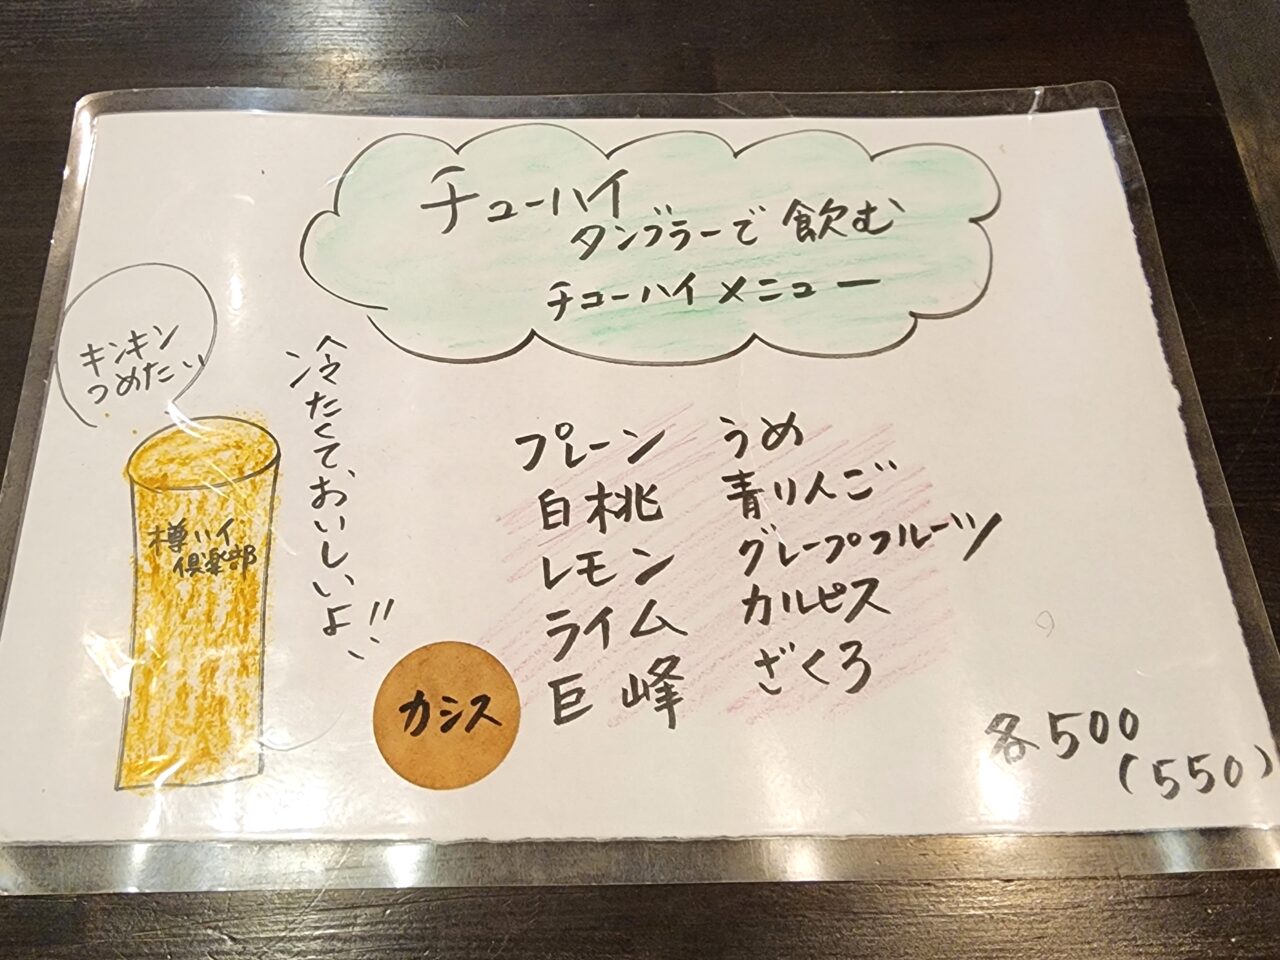 チューハイ
タンブラーで飲む
チューハイメニュー
キンキン
つめたい
冷たくておいしいよ、!!、
樽ハイ
倶楽部
プレーン うめ
白桃 青りんご
レモン グレープフルーツ
ライム カルピス
巨峰 ざくろ
カシス
各500
(550)